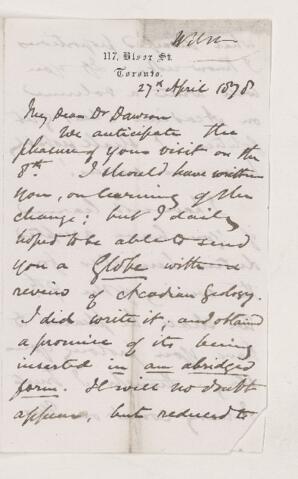 117, Bloor St.
Toronto.
27th April 1878
My Dear Dr Dawson
We anticipate the
pleasure of your visit on the
8th. I should have written
you, on learning of the
change: but I daily
hoped to be able to send
you a Globe with a
review of Acadian Geology.
I did write it, and obtained
a promise of its being
inserted in an abridged
form. It will no doubt
appear, but reduced to